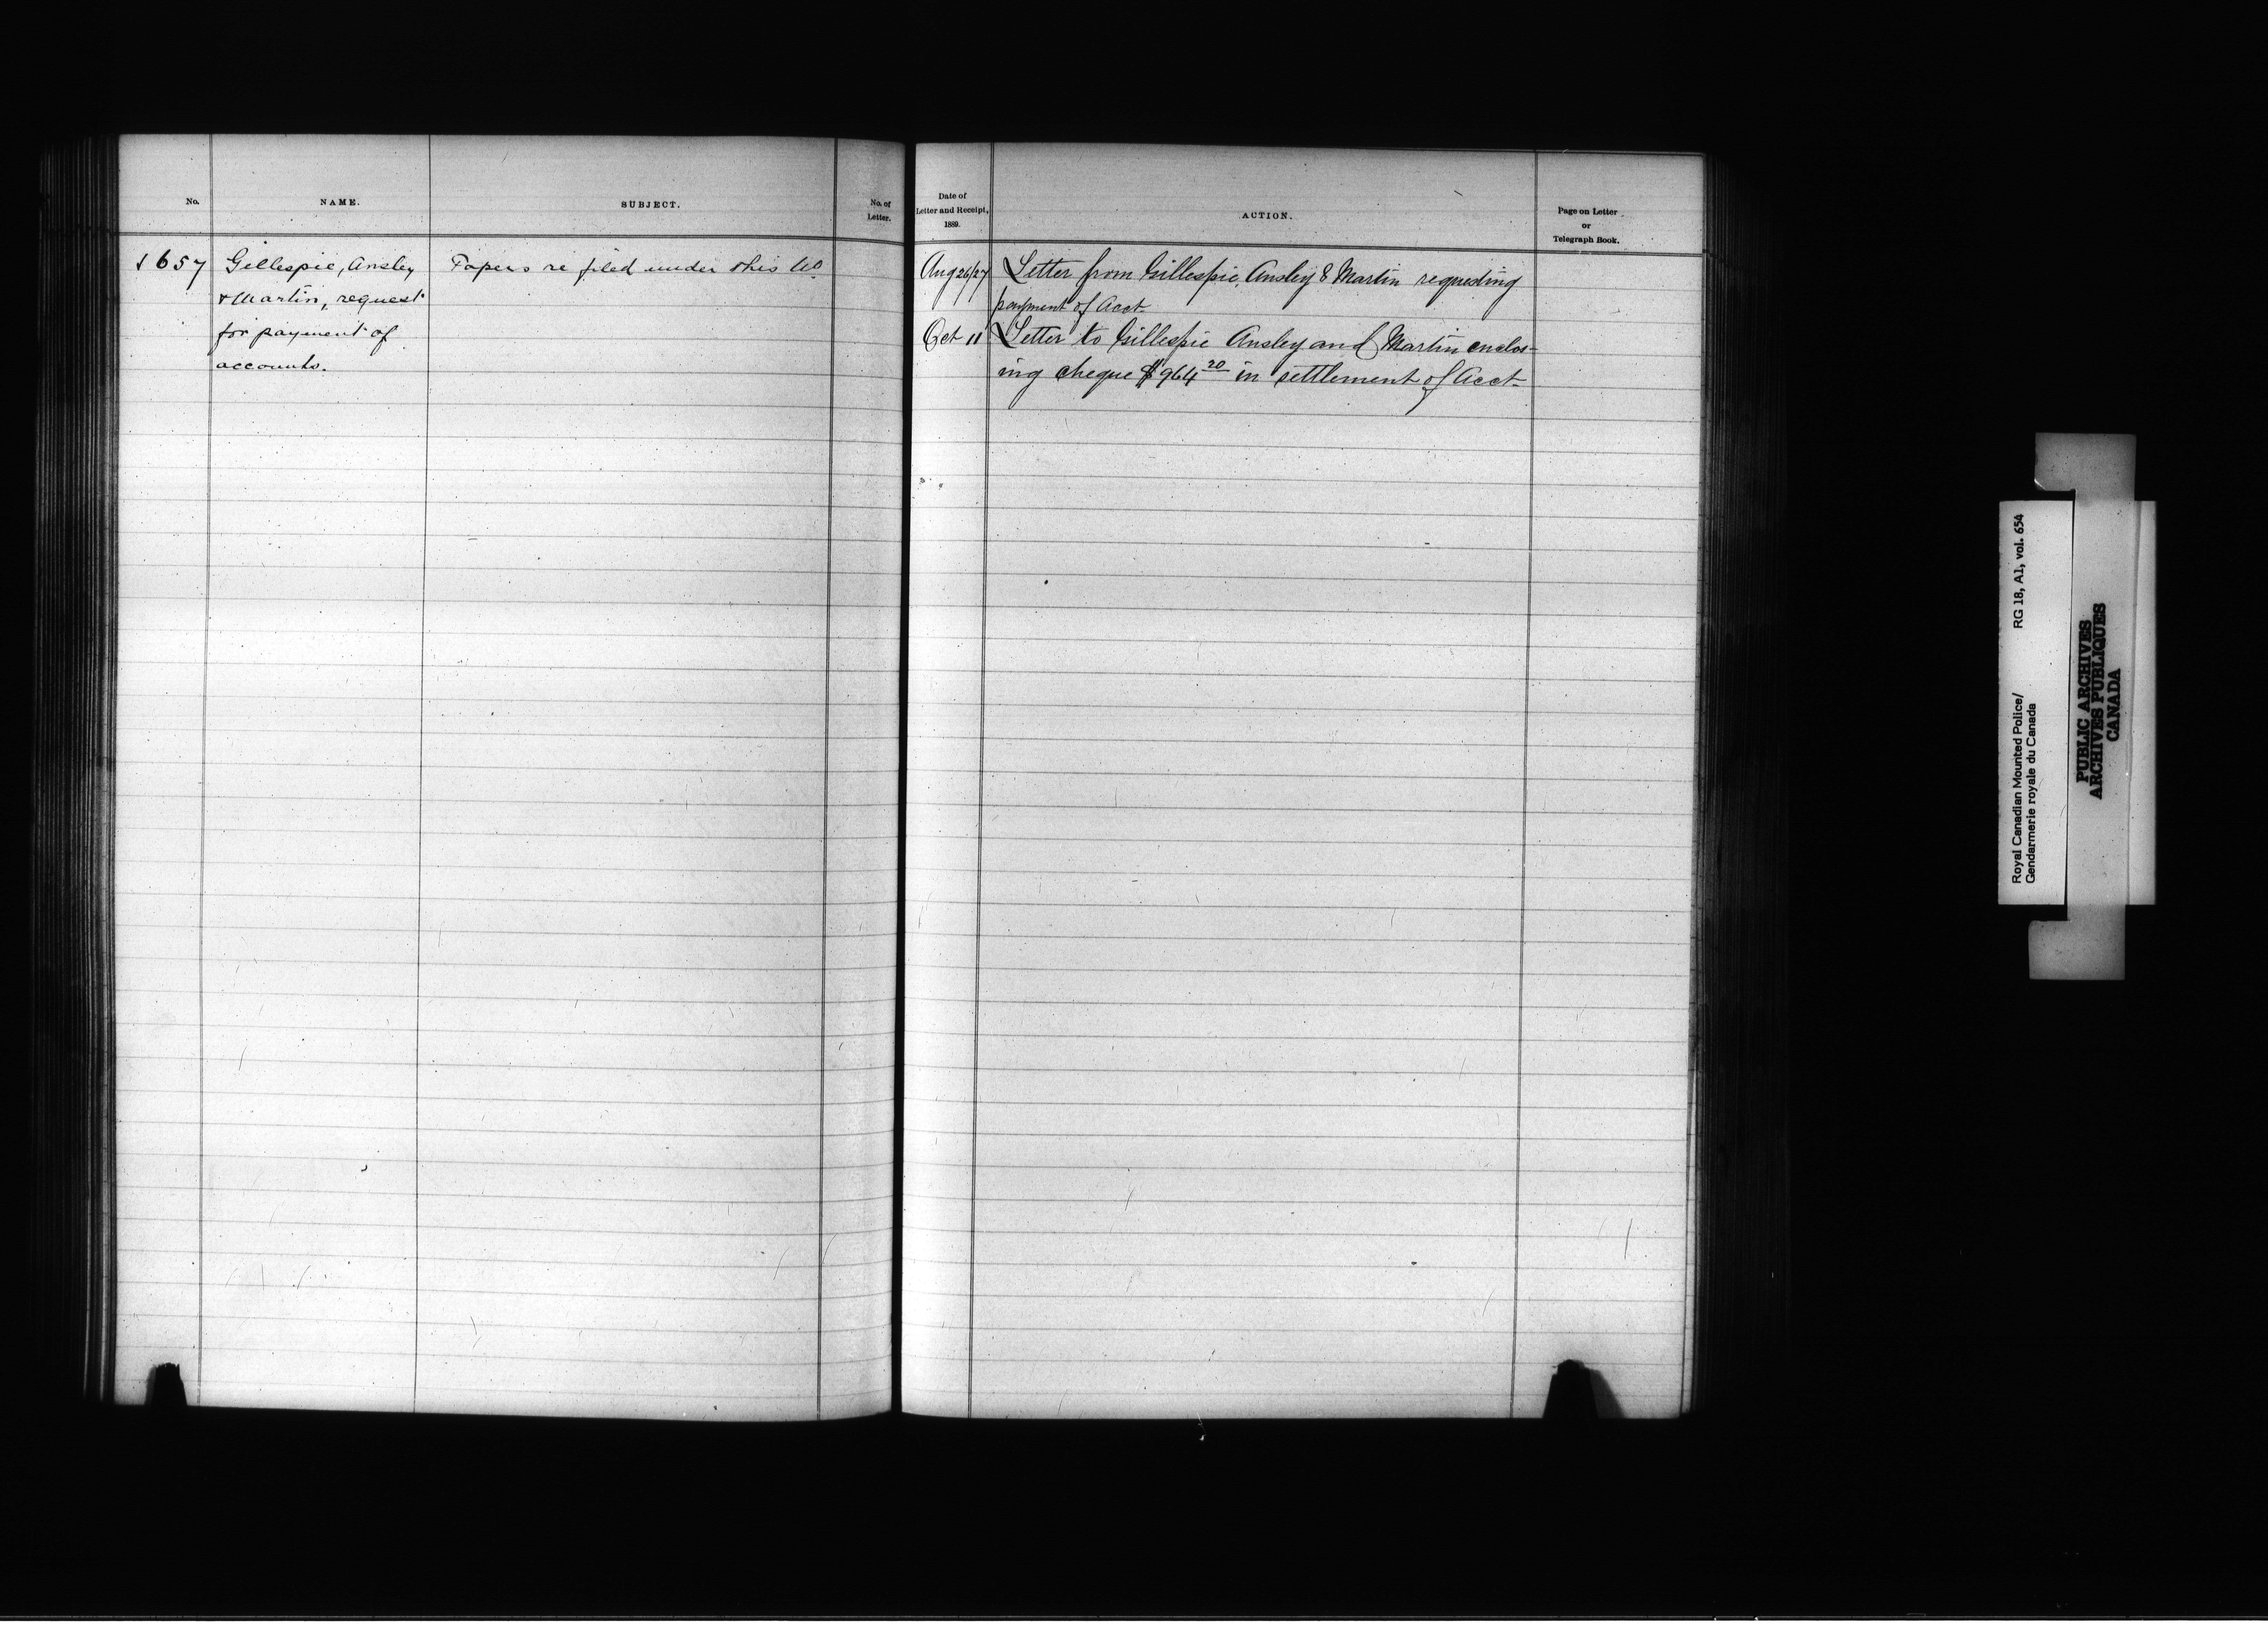 No.
NAME.
SUBJECT.
No. of
Letter.
1657
Gillespie, Ansley
& Martin, request
for payment of
accounts.
Papers re filed under this No
Date of
Letter and Receipt,
1889.
ACTION.
Page on Letter
or
Telegraph Book.
Aug 26/27
Letter from Gillespie, Ansley & Martin requesting
payment of Acct
Oct 11
Letter to Gillespie Ansley and Martin enclos-
ing cheque $964 20 in settlement of Acct
Royal Canadian Mounted Police/
Gendarmerie royale du Canada
RG 18, A1, vol. 654
PUBLIC ARCHIVES
ARCHIVES PUBLIQUES
CANADA